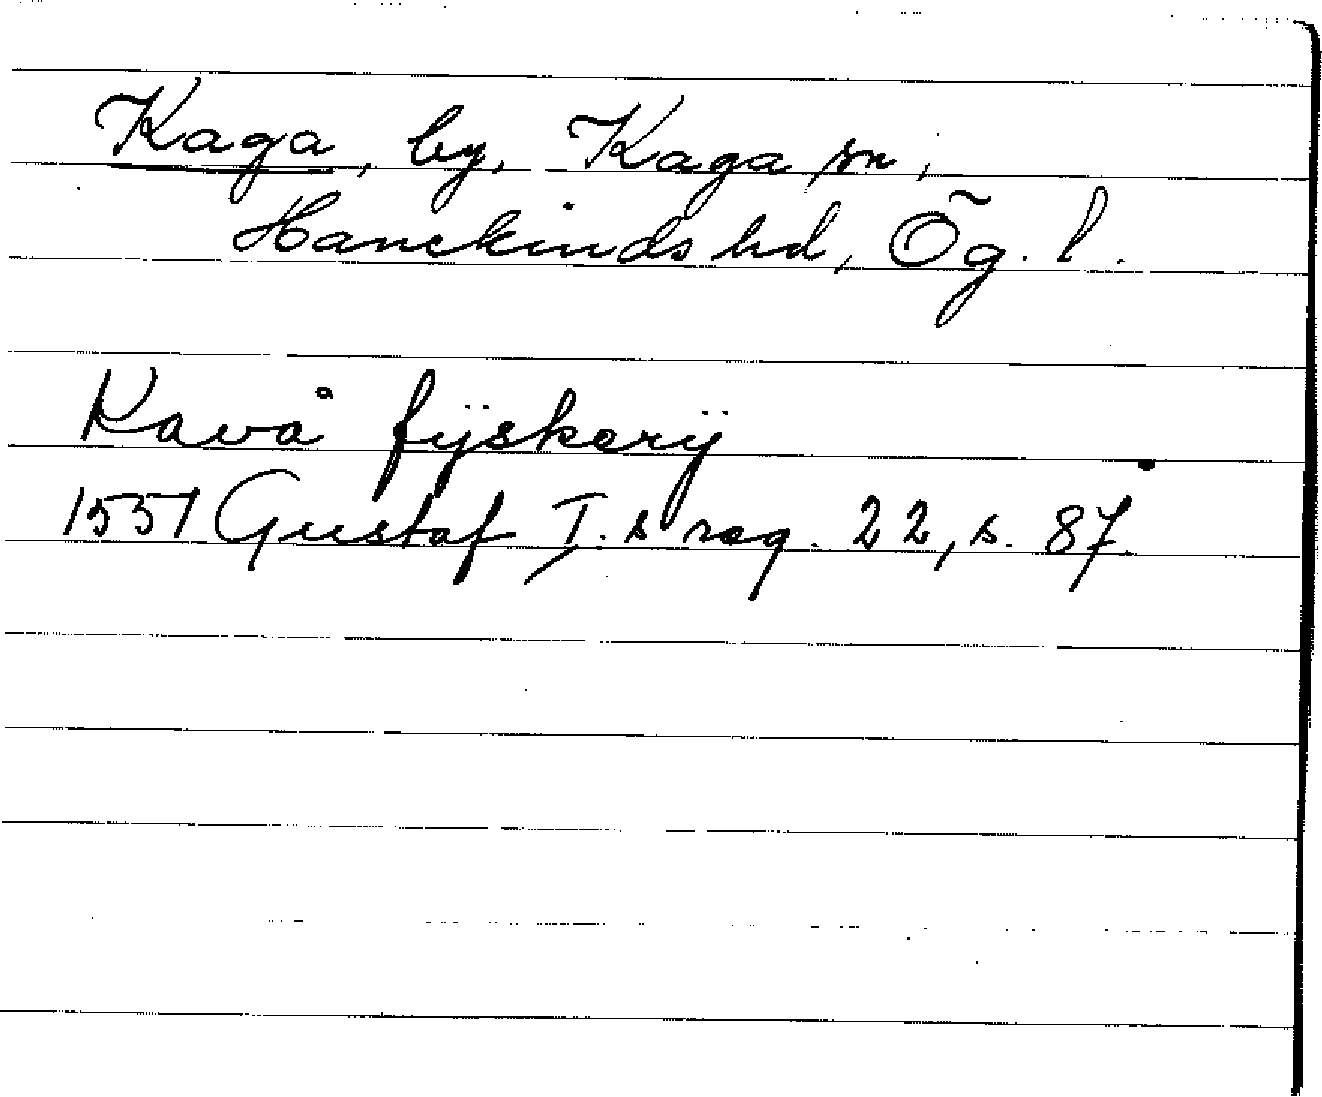 Kaga, by, Kaga sn,
Hanekinds hd, Ög. l.
Kavå fÿskerÿ
1551 Gustaf I. s reg. 22, s. 87